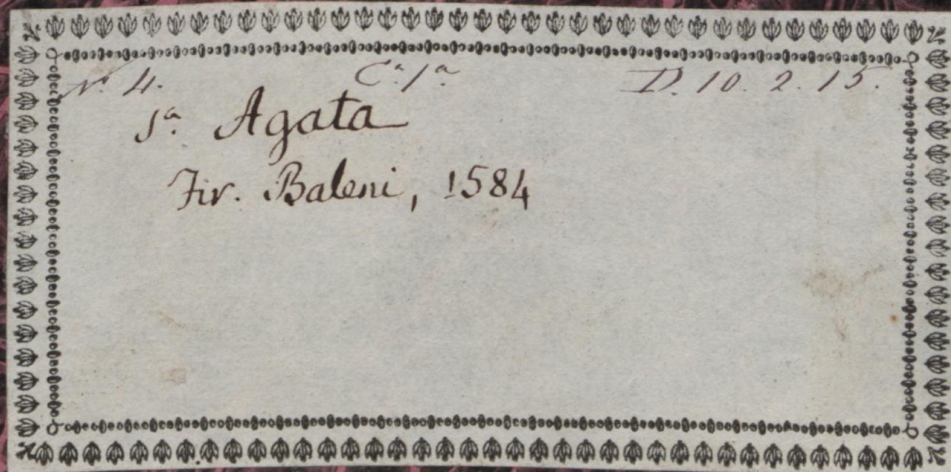 N. 4. C.ª 1.ª D. 10. 2. 15.
S.ª Agata
Fir. Baleni, 1584